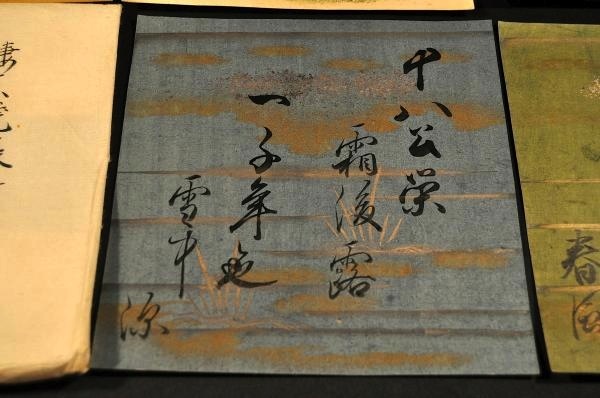 春
十八公栄
霜後露
一千年色
雪中
深